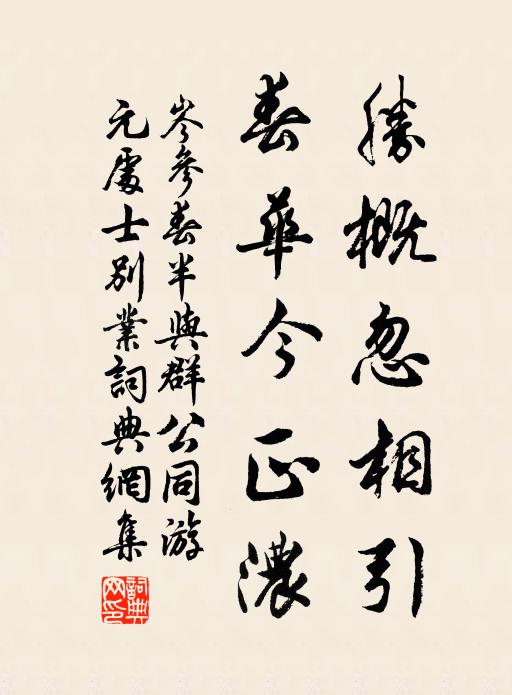 勝概忽相引
春華今正濃
岑參春半與群公同游
元處士別業詞典網集
詞典网印